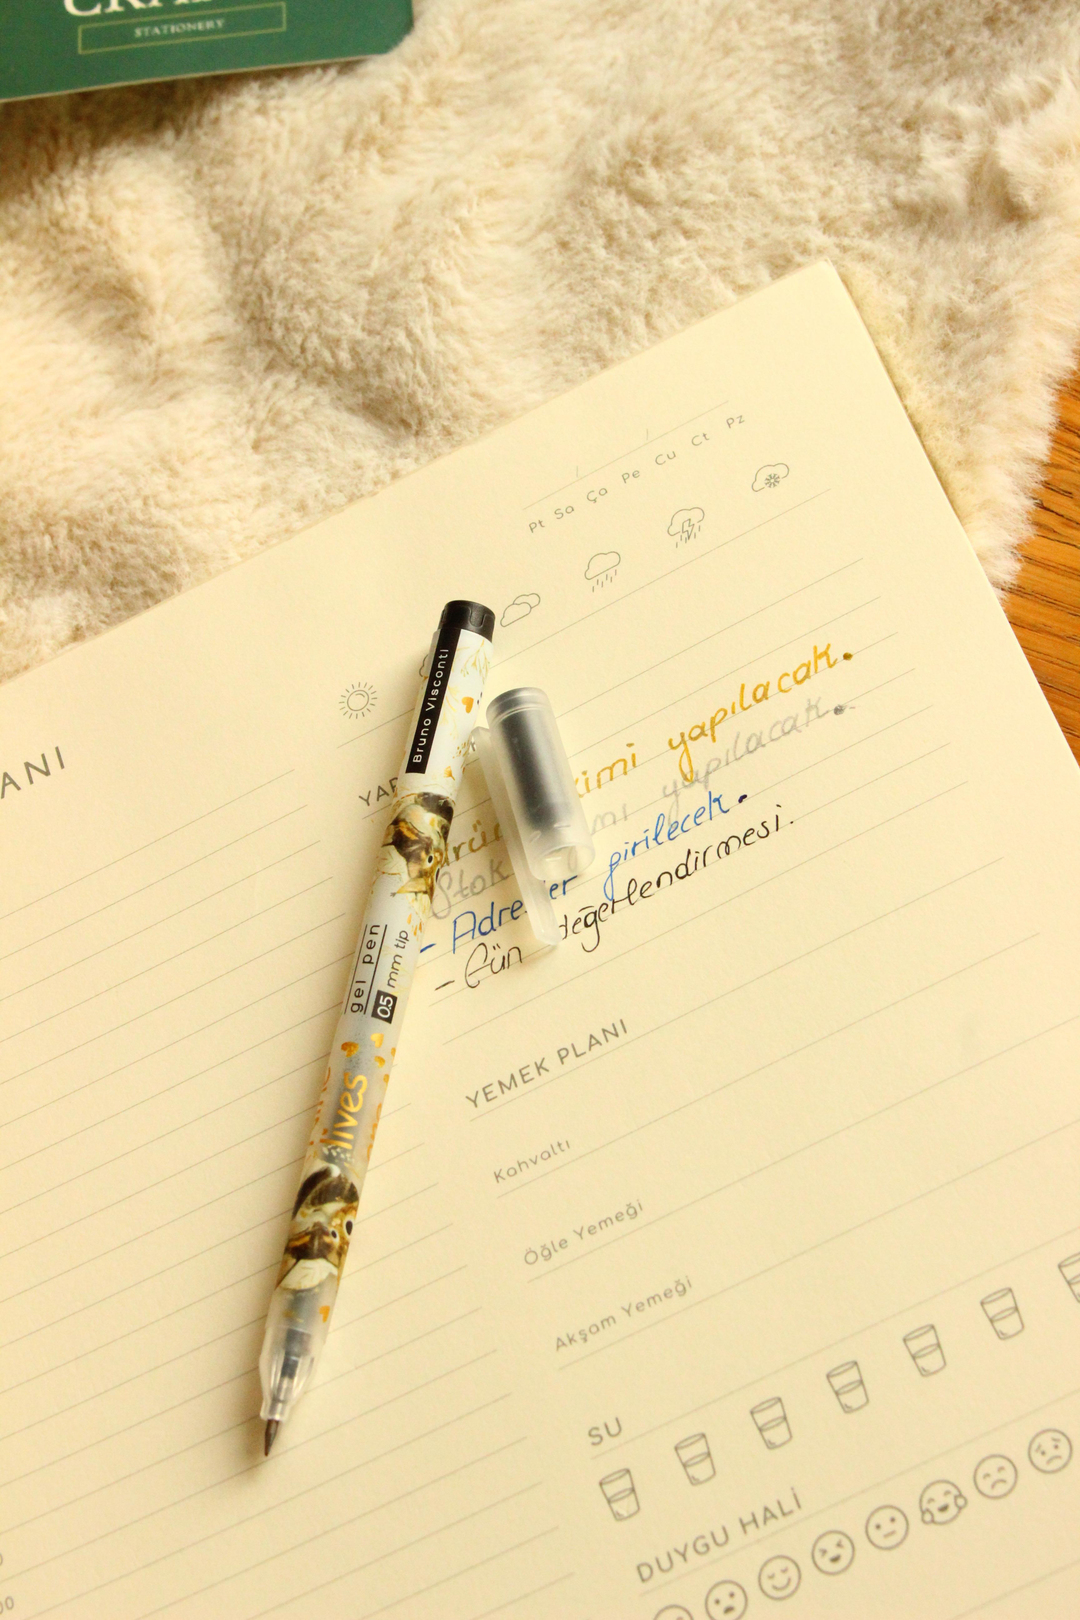 STATIONERY
Pt Sa Ça Pe Cu Ct Pz
ANI
yapılacak.
yapılacak.
Stok
girilecek.
- Gün değerlendirmesi.
Bruno Visconti
gel pen
0.5 mm tip
lives
YEMEK PLANI
Kahvaltı
Öğle Yemeği
Akşam Yemeği
SU
DUYGU HALİ